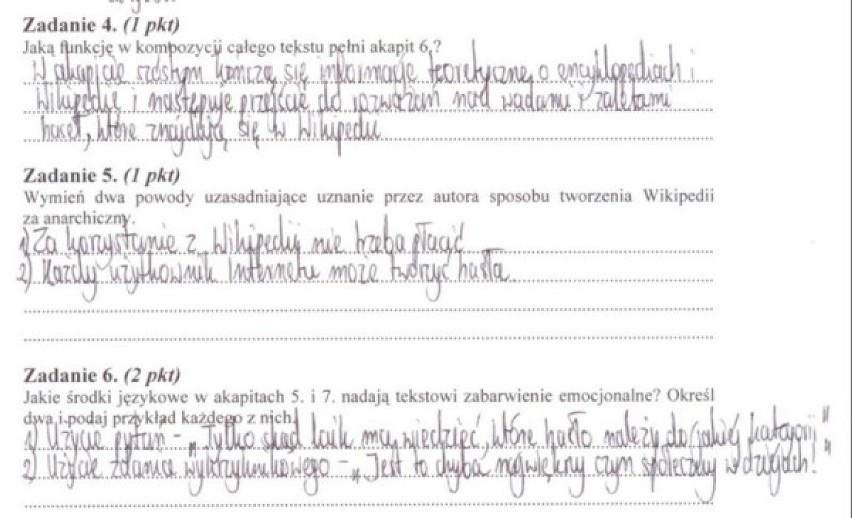 Zadanie 4. (1 pkt)
Jaką funkcję w kompozycji całego tekstu pełni akapit 6.?
W akapicie szóstym kończą się informacje teoretyczne o encyklopediach i
Wikipedii i następuje przejście do rozważań nad wadami i zaletami
haseł, które znajdują się w Wikipedii
Zadanie 5. (1 pkt)
Wymień dwa powody uzasadniające uznanie przez autora sposobu tworzenia Wikipedii
za anarchiczny.
1) Za korzystanie z Wikipedii nie trzeba płacić
2) Każdy użytkownik Internetu może tworzyć hasła
Zadanie 6. (2 pkt)
Jakie środki językowe w akapitach 5. i 7. nadają tekstowi zabarwienie emocjonalne? Określ
dwa i podaj przykład każdego z nich.
1) Użycie pytań - „Tylko skąd laik ma wiedzieć, które hasło należy do jakiej kategorii"
2) Użycie zdania wykrzyknikowego - „Jest to chyba największy czyn społeczny w dziejach!"